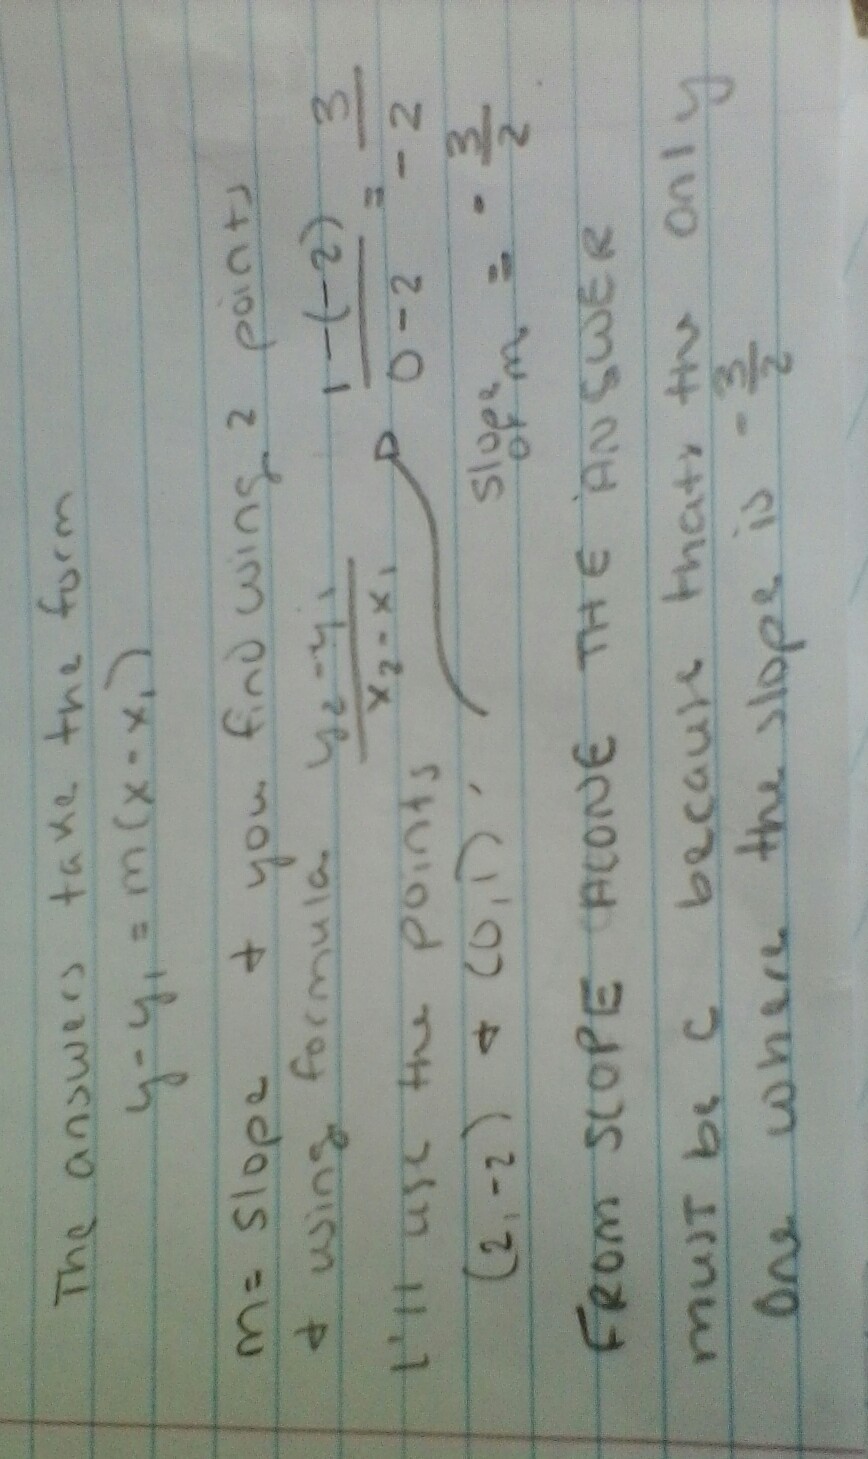 The answers take the form
y - y₁ = m(x - x₁)
m = slope + you find using 2 points
+ using formula y₂ - y₁ / x₂ - x₁ 1 - (-2) / 0 - 2 = 3 / -2
I'll use the points
(2, -2) + (0, 1). slope or m = - 3/2
FROM SLOPE ALONE THE ANSWER
must be C because thats the only
one where the slope is - 3/2